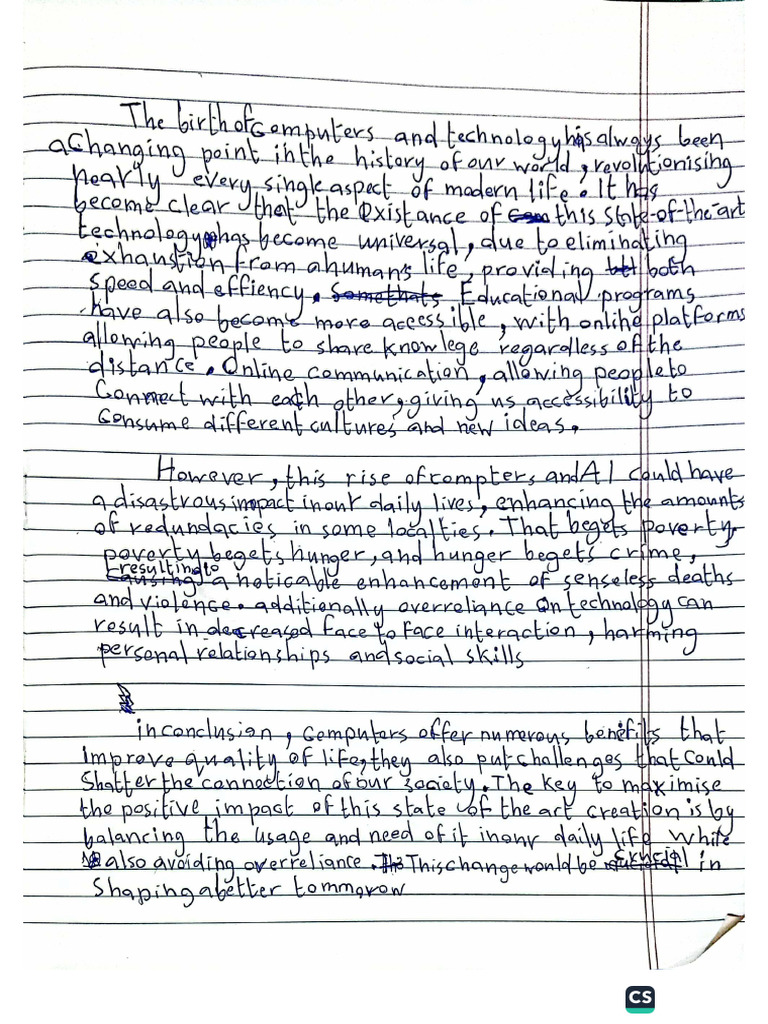 The birth of computers and technology has always been
a changing point in the history of our world, revolutionising
nearly every single aspect of modern life. It has
become clear that the existance of this state-of-the-art
technology has become universal, due to eliminating
exhaustion from a humans life, providing both
speed and effiency. Somethats Educational programs
have also become more accessible, with online platforms
allowing people to share knowlege regardless of the
distance. Online communication, allowing people to
Connect with each other, giving us accessibility to
consume different cultures and new ideas.
However, this rise of compters and AI could have
a disastrous impact in our daily lives, enhancing the amounts
of redundacies in some localties. That begets poverty.
poverty begets hunger, and hunger begets crime,
resulting to
causing a noticable enhancement of senseless deaths
and violence. additionally overreliance on technology can
result in decreased face to face interaction, harming
personal relationships and social skills
in conclusion, computers offer numerous benifits that
improve quality of life, they also put challenges that could
Shatter the connection of our society. The key to maximise
the positive impact of this state of the art creation is by
balancing the usage and need of it in our daily life while
also avoiding overreliance. This change would be crucial in
Shaping a better tommorow
CS